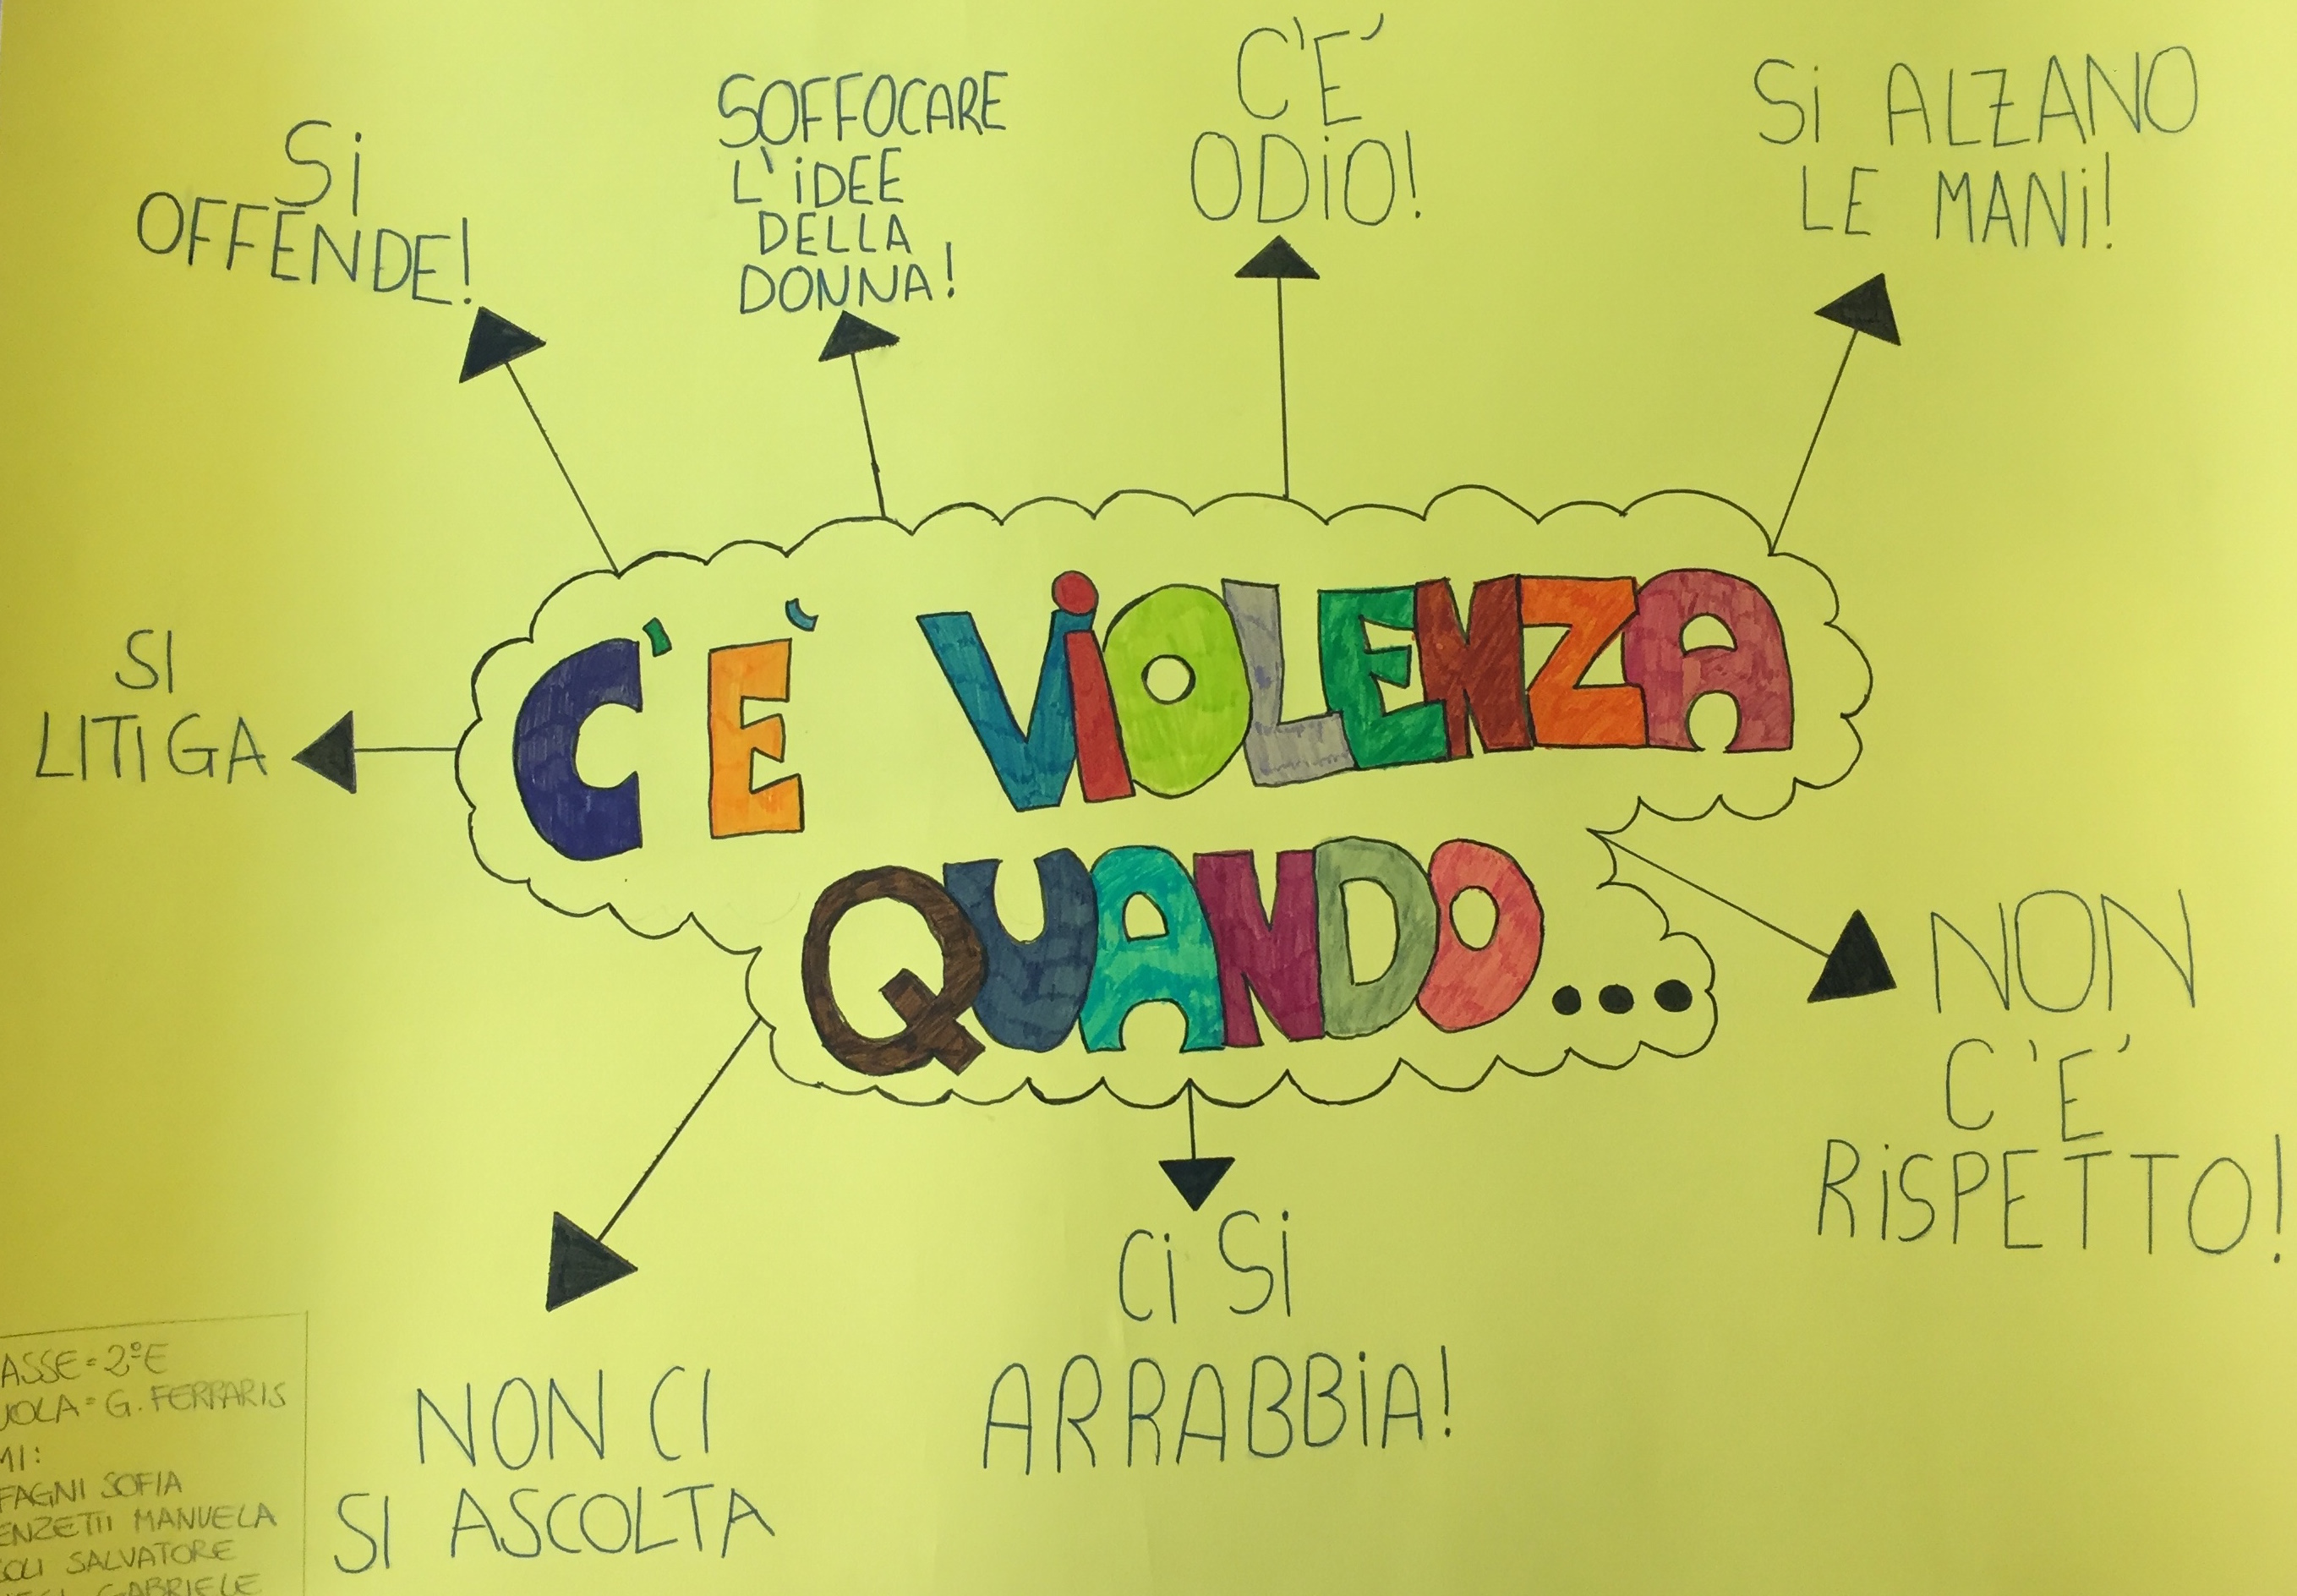 Si
OFFENDE!
SOFFOCARE
L'iDEE
DELLA
DONNA!
C'E'
ODiO!
Si ALZANO
LE MANi!
SI
LITIGA
C'È ViOLENZA
QUANDO...
NON
C'E'
RiSPETTO!
Ci Si
ARRABBiA!
NON CI
SI ASCOLTA
ASSE=2°E
UOLA=G. FERRARIS
MI:
FAGNI SOFIA
ENZETTI MANUELA
SALVATORE
GABRIELE